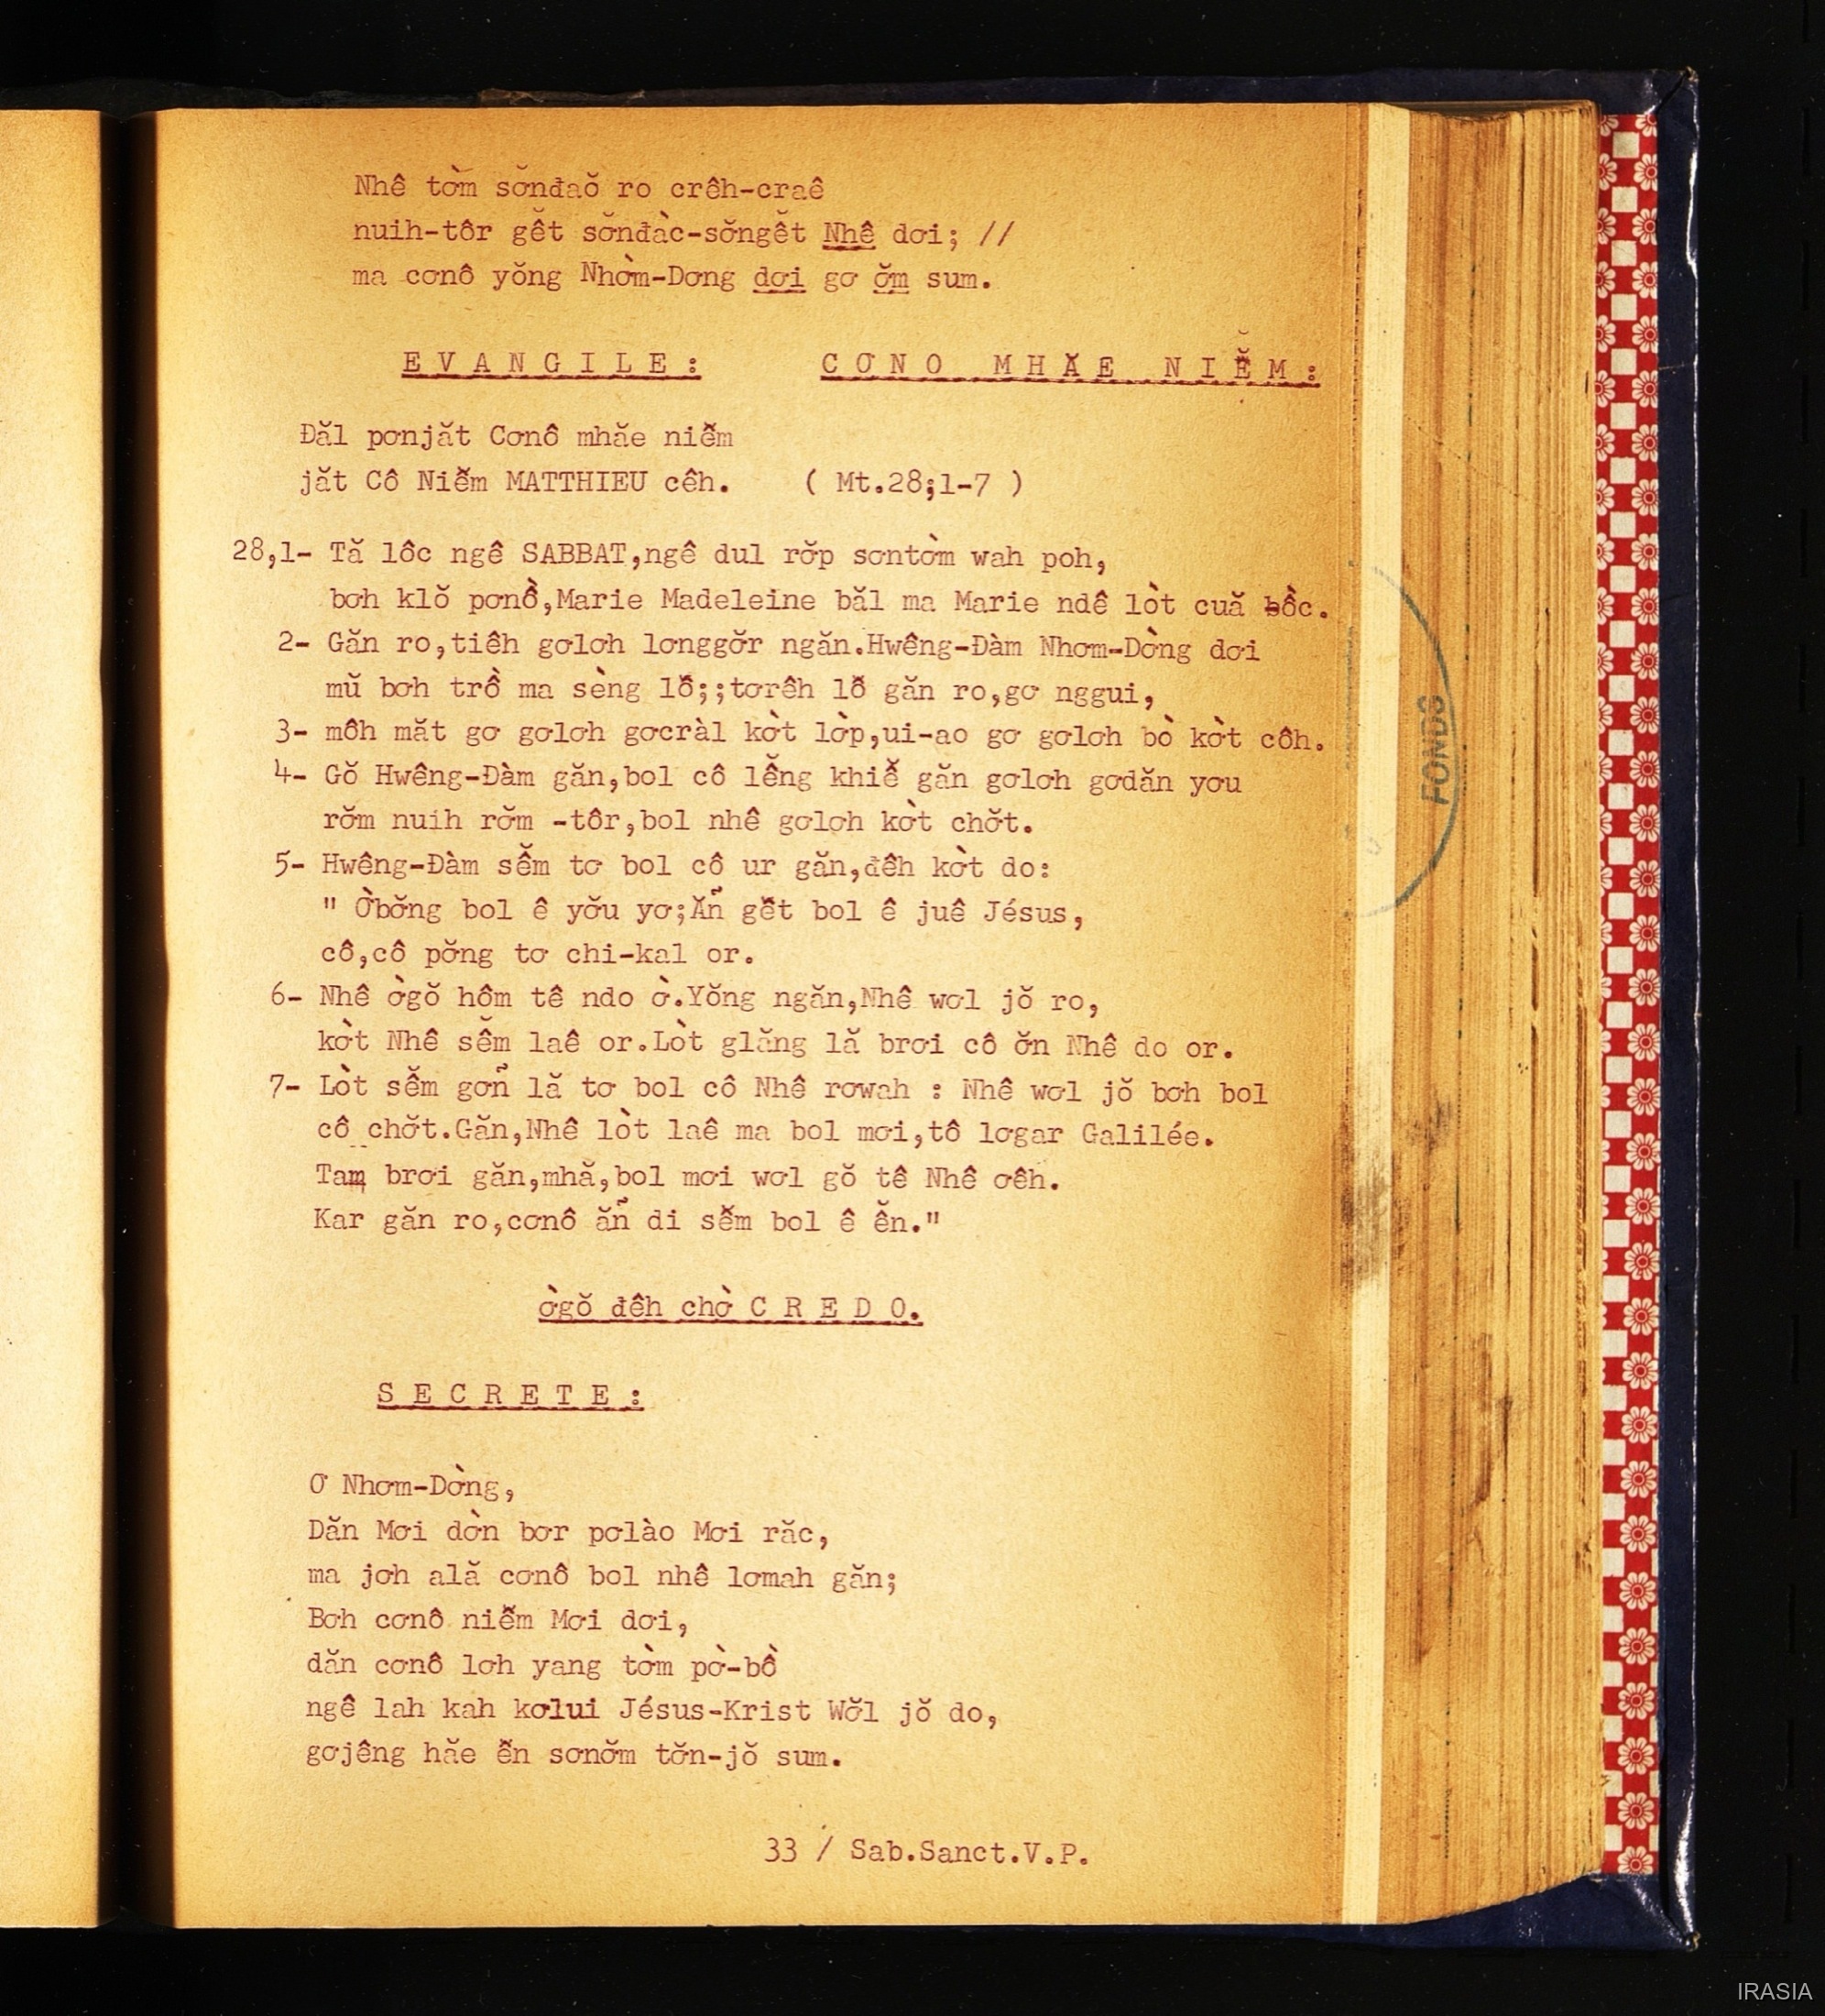 Nhê tờm sơ̆nđaŏ ro crêh-craê
nuih-tôr gê̆t sơ̆nđàc-sơ̆ngê̆t Nhê dơi; //
ma cơnô yŏng Nhờm-Dơng dơi gơ ơ̆m sum.
E V A N G I L E : C Ơ N O M H Ă E N I Ê̆ M :
Đăl pơnjăt Cơnô mhăe niê̆m
jăt Cô Niê̆m MATTHIEU cêh. ( Mt.28;1-7 )
28,1- Tă lôc ngê SABBAT,ngê dul rơ̆p sơntờm wah poh,
bơh klŏ pơnồ,Marie Madeleine băl ma Marie ndê lòt cuă bồc.
2- Găn ro,tiêh gơlơh lơnggơ̆r ngăn.Hwêng-Đàm Nhơm-Dờng dơi
mŭ bơh trồ ma sèng lô̆;;tơrêh lô̆ găn ro,gơ nggui,
3- môh măt gơ gơlơh gơcràl kờt lờp,ui-ao gơ gơlơh bò kờt côh.
4- Gŏ Hwêng-Đàm găn,bol cô lê̆ng khiê̆ găn gơlơh gơdăn yơu
rơ̆m nuih rơ̆m -tôr,bol nhê gơlơh kờt chơ̆t.
5- Hwêng-Đàm sê̆m tơ bol cô ur găn,đêh kờt do:
" Ờbơ̆ng bol ê yơ̆u yơ;Ẳn gê̆t bol ê juê Jésus,
cô,cô pơ̆ng tơ chi-kal or.
6- Nhê ờgŏ hôm tê ndo ờ.Yŏng ngăn,Nhê wơl jŏ ro,
kờt Nhê sê̆m laê or.Lòt glăng lă brơi cô ơ̆n Nhê do or.
7- Lòt sê̆m gơn̉ lă tơ bol cô Nhê rơwah : Nhê wơl jŏ bơh bol
cô chơ̆t.Găn,Nhê lòt laê ma bol mơi,tô lơgar Galilée.
Tam brơi găn,mhă,bol mơi wơl gŏ tê Nhê ơêh.
Kar găn ro,cơnô ẳn di sê̆m bol ê ê̆n."
ờgŏ đêh chờ C R E D O.
S E C R E T E :
Ơ Nhơm-Dờng,
Dăn Mơi dờn bơr pơlào Mơi răc,
ma jơh ală cơnô bol nhê lơmah găn;
Bơh cơnô niê̆m Mơi dơi,
dăn cơnô lơh yang tờm pờ-bồ
ngê lah kah kơlui Jésus-Krist Wơ̆l jŏ do,
gơjêng hăe ê̆n sơnơ̆m tơ̆n-jŏ sum.
33 / Sab.Sanct.V.P.
FONDS
IRASIA